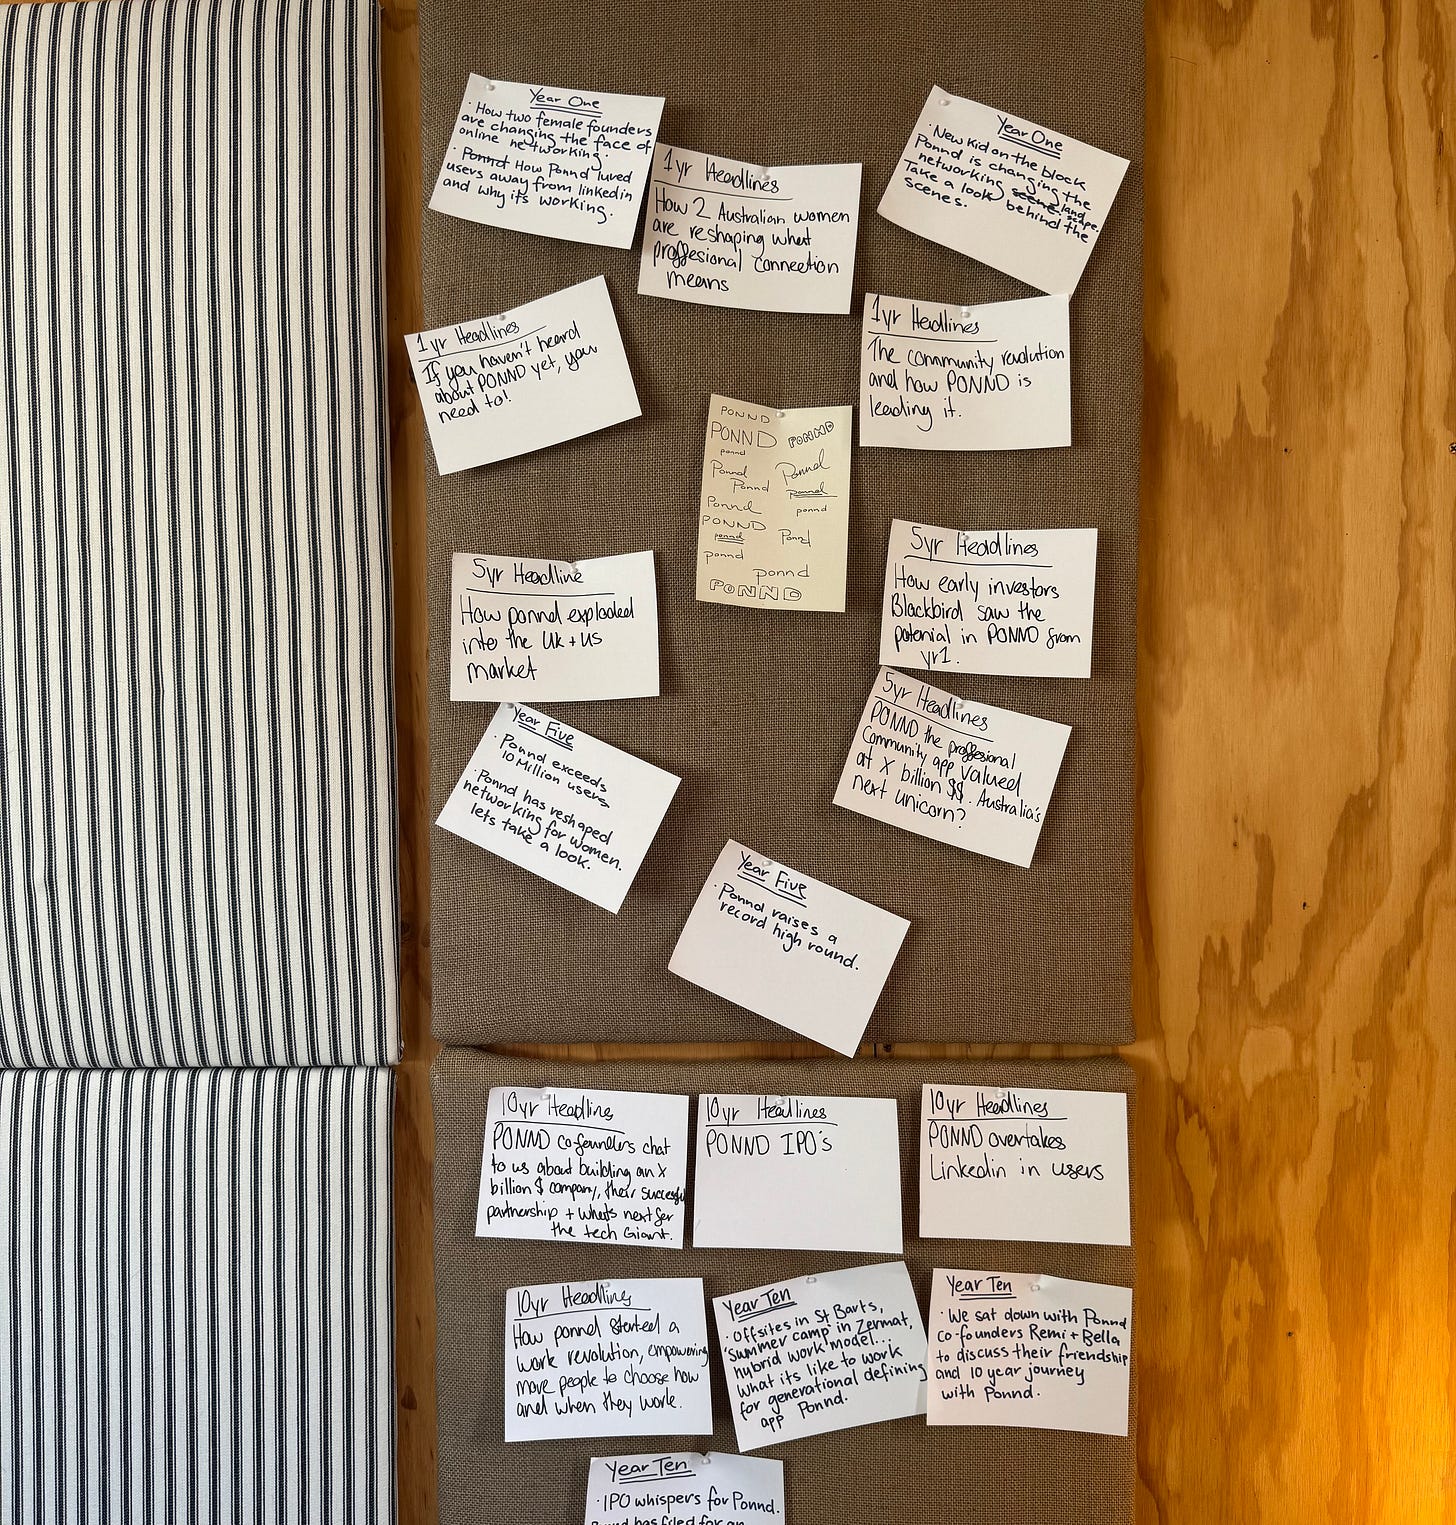 Year One
· How two female founders
are changing the face of
online networking.
· Ponnd How Ponnd lured
users away from linkedin
and why it's working.
1yr Headlines
How 2 Australian women
are reshaping what
proffesional connection
means
Year One
· New kid on the block
Ponnd is changing the
networking scene. landscape.
Take a look behind the
scenes.
1yr Headlines
If you haven't heard
about PONND yet, you
need to!
1yr Headlines
The community revolution
and how PONND is
leading it.
PONND
PONND PONND
ponnd
Ponnd Ponnd
Ponnd Ponnd
Ponnd ponnd
PONND
ponnd Ponnd
ponnd
ponnd
PONND
5yr Headline
How ponnd exploded
into the UK + US
market
5yr Headlines
How early investors
Blackbird saw the
potenial in PONND from
yr1.
Year Five
· Ponnd exceeds
10 Million users
· Ponnd has reshaped
networking for women.
lets take a look.
5yr Headlines
PONND the proffesional
Community app valued
at X billion $$. Australia's
next unicorn?
Year Five
· Ponnd raises a
record high round.
10yr Headlines
PONND co-founders chat
to us about building an X
billion $ company, their successful
partnership + what's next for
the tech Giant.
10yr Headlines
PONND IPO's
10yr Headlines
PONND overtakes
Linkedin in users
10yr Headlines
How ponnd started a
work revolution, empowering
more people to choose how
and when they work.
Year Ten
· Offsites in St Barts,
'Summer camp' in Zermat,
hybrid work model...
what its like to work
for generational defining
app Ponnd.
Year Ten
· We sat down with Ponnd
co-founders Remi + Bella
to discuss their friendship
and 10 year journey
with Ponnd.
Year Ten
· IPO whispers for Ponnd.
Ponnd has filed for an